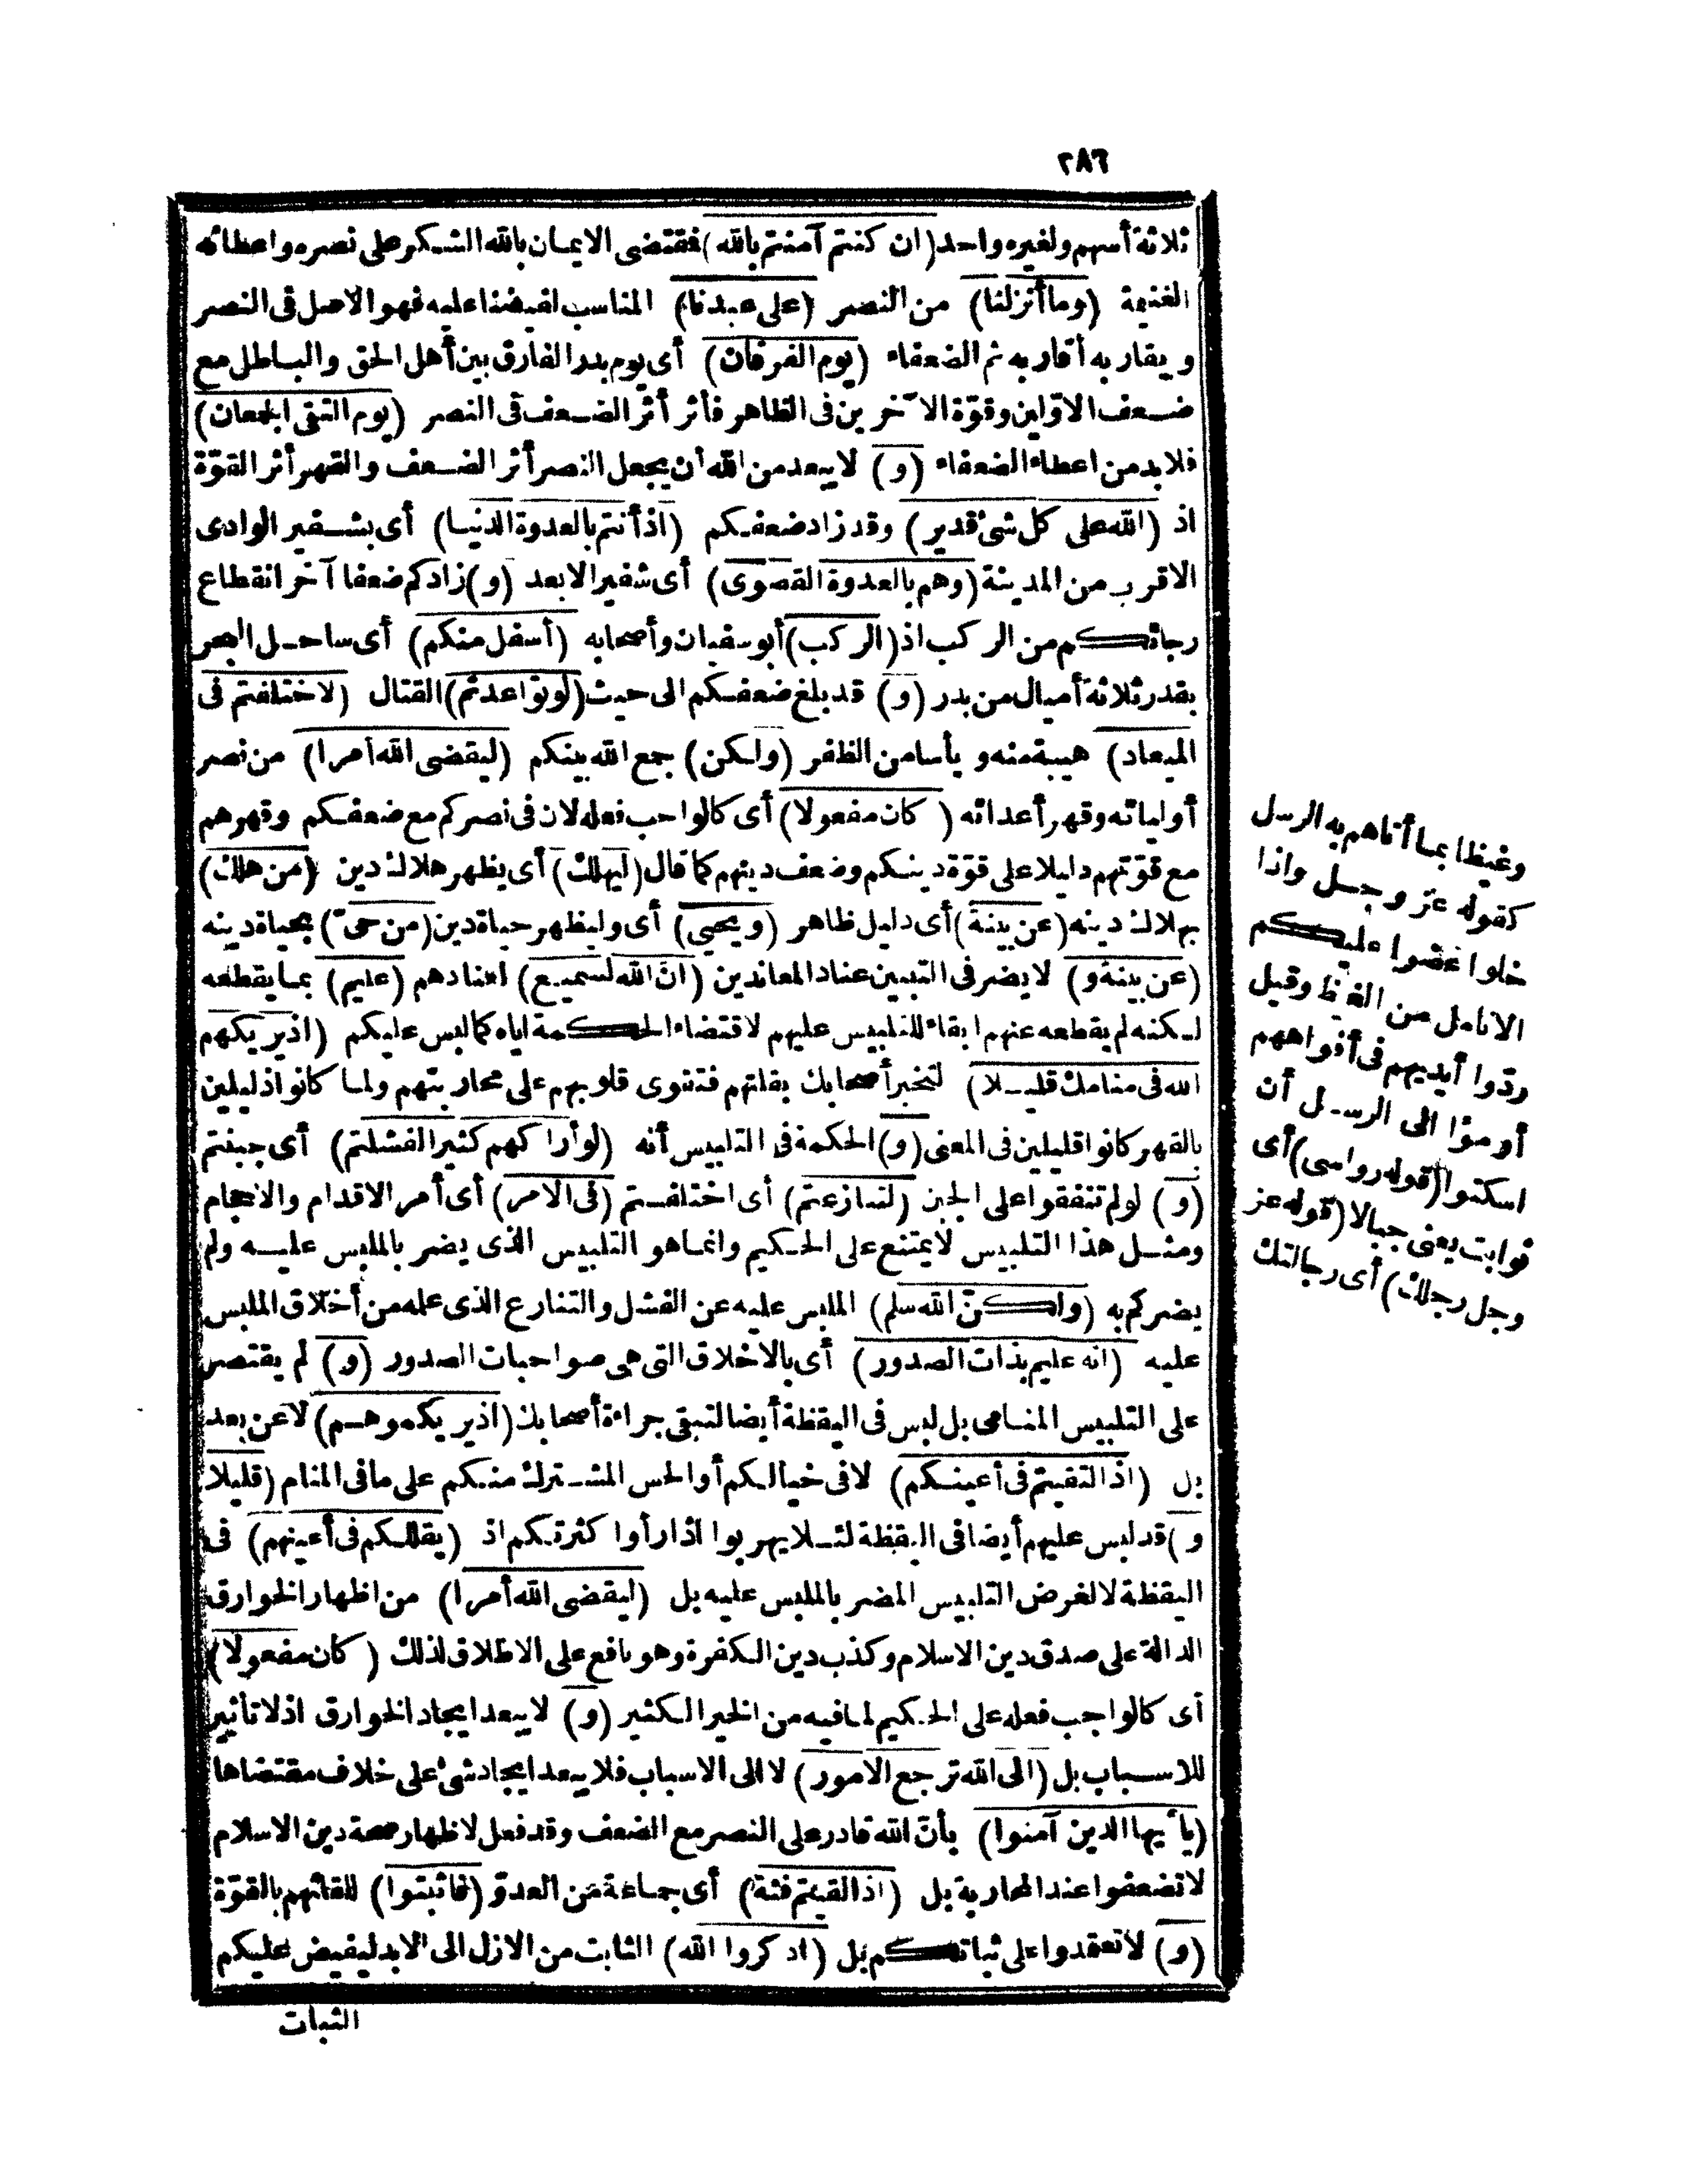 ٢٨٦
ثلاثة أسهم ولغيره واحد (ان كنتم آمنتم بالله) فقتضى الايمان بالله الشكر على نصره واعطائه
الغنيمة (وما أنزلنا) من النصر (على عبدنا) المناسب لفيضنا عليه فهو الاصل فى النصر
ويقاربه أقاربه ثم الضعفاء (يوم الفرقان) أى يوم بدر الفارق بين أهل الحق والباطل مع
ضعف الاوّلين وقوّة الآخرين فى الظاهر فأثر أثر الضعف فى النصر (يوم التقى الجمعان)
فلابد من اعطاء الضعفاء (و) لا يبعد من الله أن يجعل النصر أثر الضعف والقهر أثر القوّة
اذ (الله على كل شئ قدير) وقد زاد ضعفكم (اذ أنتم بالعدوة الدنيا) أى بشفير الوادى
الاقرب من المدينة (وهم بالعدوة القصوى) أى شفير الابعد (و) زادكم ضعفا آخر انقطاع
رجائكم من الركب اذ (الركب) أبو سفيان وأصحابه (أسفل منكم) أى ساحل البحر
بقدر ثلاثة أميال من بدر (و) قد بلغ ضعفكم الى حيث (لو تواعدتم) القتال (لاختلفتم فى
الميعاد) هيبة منه ويأسا من الظفر (ولكن) جمع الله بينكم (ليقضى الله أمرا) من نصر
أوليائه وقهر أعدائه (كان مفعولا) أى كالواجب فعله لان فى نصركم مع ضعفكم وقهرهم
مع قوّتهم دليلا على قوّة دينكم وضعف دينهم كما قال (ليهلك) أى يظهر هلاك دين (من هلك)
بهلاك دينه (عن بينة) أى دليل ظاهر (ويحيى) أى وليظهر حياة دين (من حىّ) بحياة دينه
(عن بينة و) لا يضر فى التبيين عناد المعاندين (ان الله لسميع) لعنادهم (عليم) بما يقطعه
لكنه لم يقطعه عنهم ابقاء للتلبيس عليهم لاقتضاء الحكمة اياه كما لبس عليكم (اذ يريكهم
الله فى منامك قليلا) لتخبر أصحابك بقلتهم فتقوى قلوبهم على محاربتهم ولما كانوا ذليلين
بالقهر كانوا قليلين فى المعنى (و) الحكمة فى التلبيس أنه (لو أراكهم كثيرا لفشلتم) أى جبنتم
(و) لو لم تتفقوا على الجبن (لتنازعتم) أى اختلفتم (فى الامر) أى أمر الاقدام والاحجام
ومثل هذا التلبيس لا يمتنع على الحكيم وانما هو التلبيس الذى يضر بالملبس عليه ولم
يضركم به (ولكنّ الله سلم) الملبس عليه عن الفشل والتنازع الذى علمه من أخلاق الملبس
عليه (انه عليم بذات الصدور) أى بالاخلاق التى هى صواحبات الصدور (و) لم يقتصر
على التلبيس المنامى بل لبس فى اليقظة أيضا لتبقى جراءة أصحابك (اذ يريكموهم) لا عن بعد
بل (اذ التقيتم فى أعينكم) لا فى خيالكم أو الحس المشترك منكم على ما فى المنام (قليلا
و) قد لبس عليهم أيضا فى اليقظة لئلا يهربوا اذا رأوا كثرتكم اذ (يقللكم فى أعينهم) فى
اليقظة لا لغرض التلبيس المضر بالملبس عليه بل (ليقضى الله أمرا) من اظهار الخوارق
الدالة على صدق دين الاسلام وكذب دين الكفرة وهو نافع على الاطلاق لذلك (كان مفعولا)
أى كالواجب فعله على الحكيم لما فيه من الخير الكثير (و) لا يبعد ايجاد الخوارق اذ لا تأثير
للاسباب بل (الى الله ترجع الامور) لا الى الاسباب فلا يبعد ايجاد شئ على خلاف مقتضاها
(يا أيها الذين آمنوا) بأنّ الله قادر على النصر مع الضعف وقد فعل لاظهار صحة دين الاسلام
لا تضعفوا عند المحاربة بل (اذا لقيتم فئة) أى جماعة من العدوّ (فاثبتوا) للقائهم بالقوّة
(و) لا تعتمدوا على ثباتكم بل (اذكروا الله) الثابت من الازل الى الابد ليفيض عليكم
الثبات
وغيظا بما أتاهم به الرسل
كقوله عز وجل واذا
خلوا عضوا عليكم
الانامل من الغيظ وقيل
ردّوا أيديهم فى أفواههم
أومؤا الى الرسل أن
اسكتوا (قوله رواسى) أى
ثوابت يعنى جبالا (قوله عز
وجل رجلك) أى رجالتك